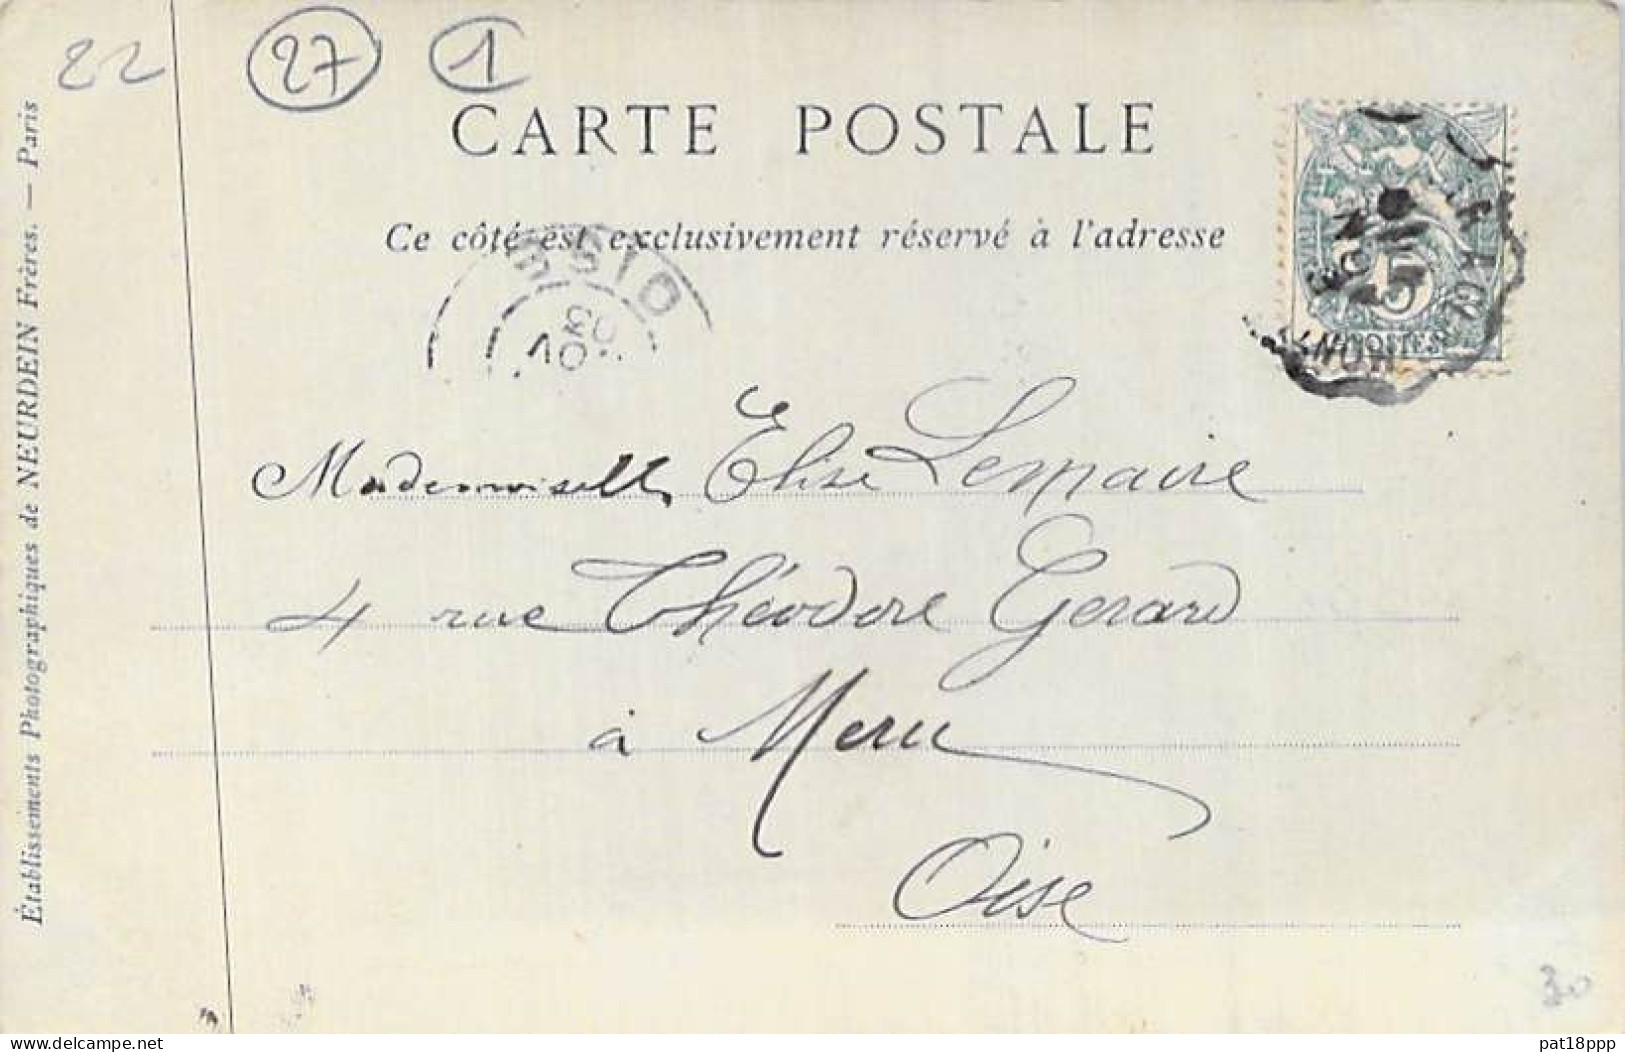 22 27 1
CARTE POSTALE
Ce côté est exclusivement réservé à l'adresse
5
POSTES
Mademoiselle Elise Lemaire
4 rue Théodore Gerard
à Meru
Oise
30
Établissements Photographiques de NEURDEIN Frères. — Paris
delcampe.net
pat18ppp